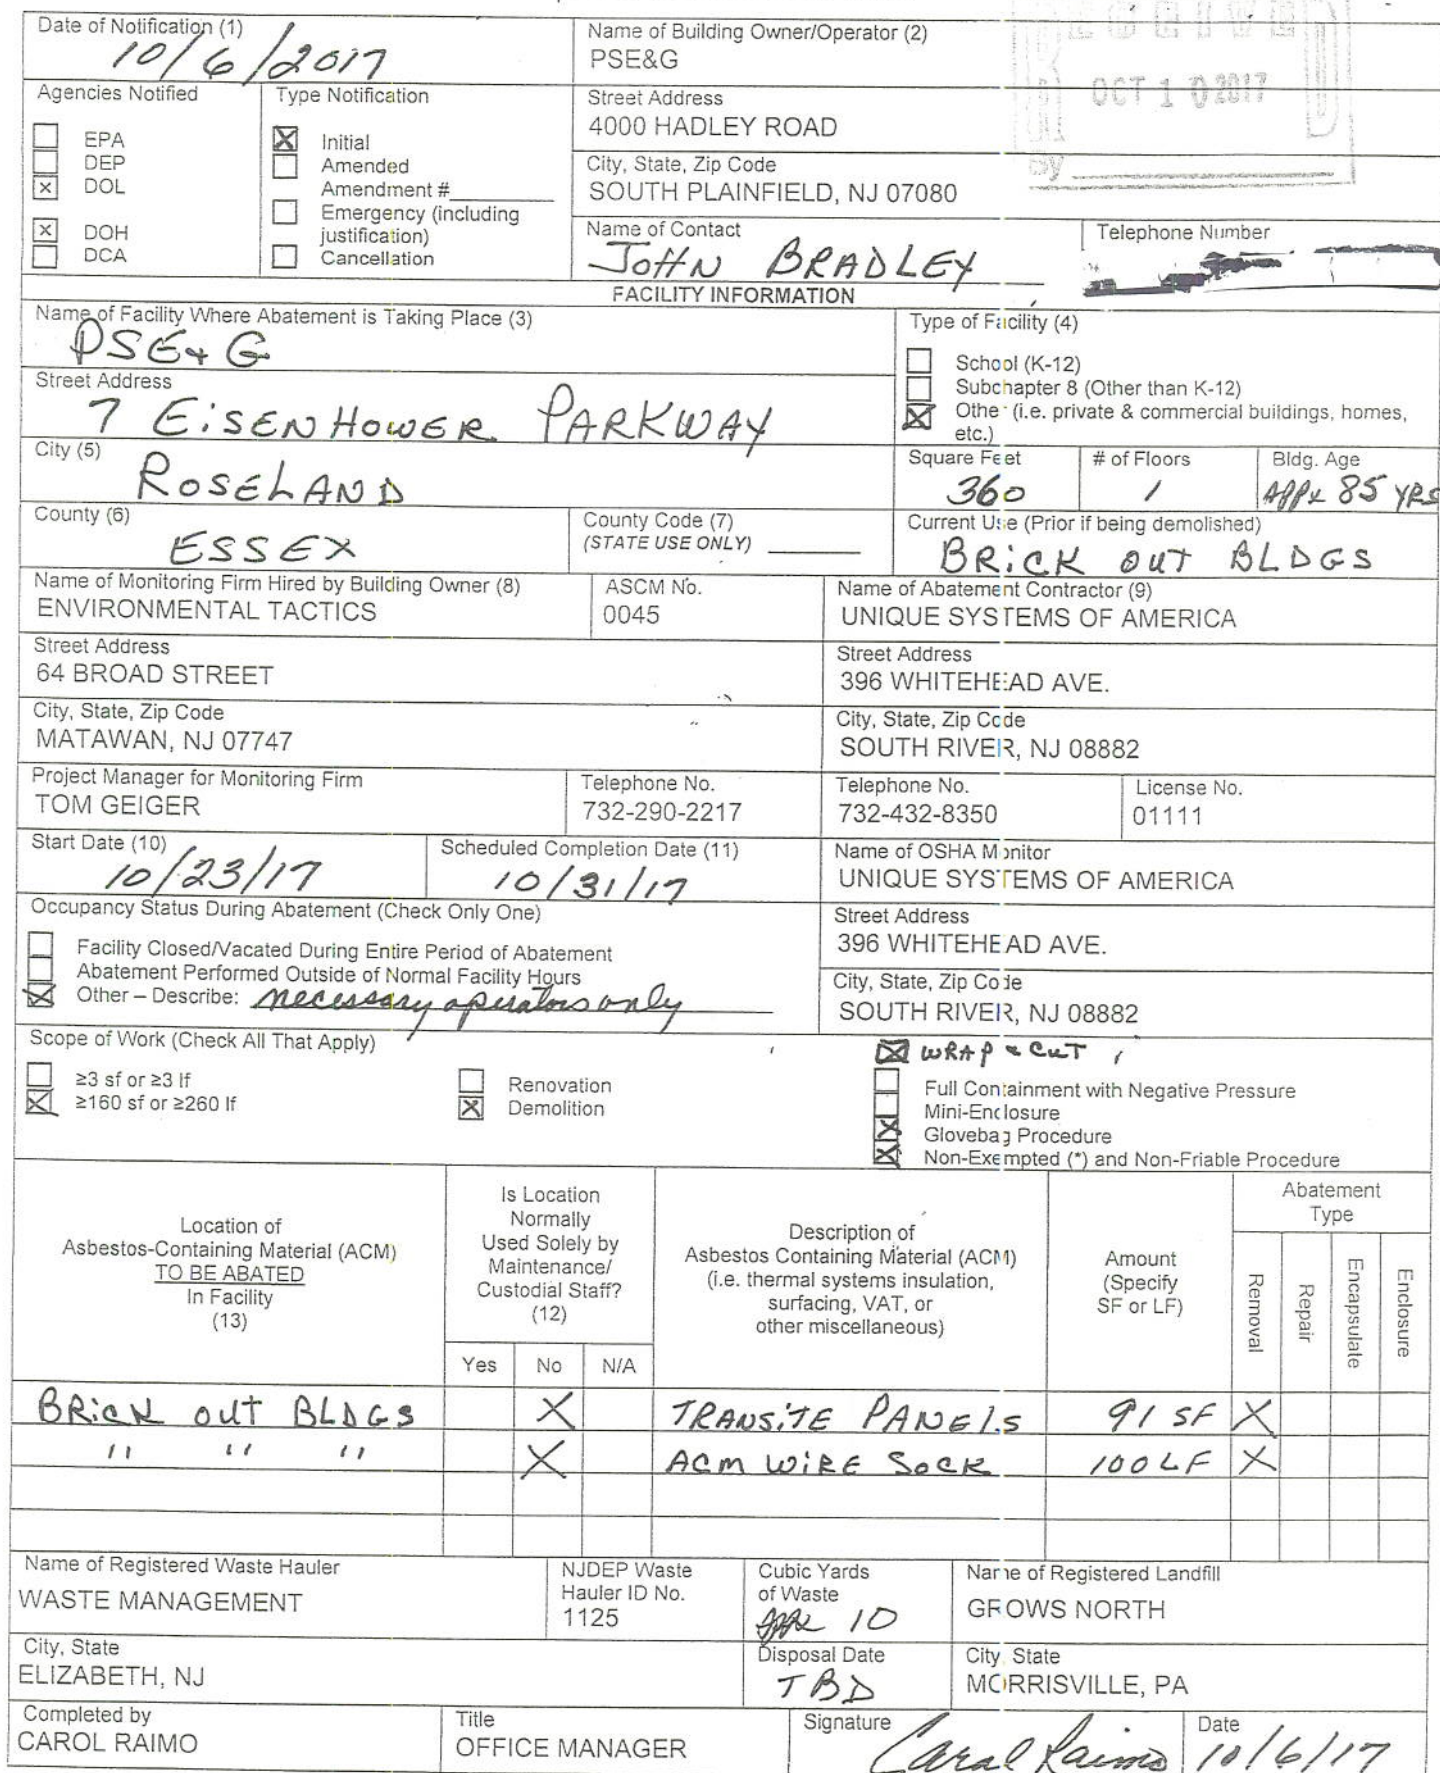 Date of Notification (1)
10/6/2017
Name of Building Owner/Operator (2)
PSE&G
RECEIVED
OCT 10 2017
By
Agencies Notified
EPA
DEP
DOL
DOH
DCA
Type Notification
Initial
Amended
Amendment #
Emergency (including
justification)
Cancellation
Street Address
4000 HADLEY ROAD
City, State, Zip Code
SOUTH PLAINFIELD, NJ 07080
Name of Contact
JOHN BRADLEY
Telephone Number
FACILITY INFORMATION
Name of Facility Where Abatement is Taking Place (3)
PSE+G
Street Address
7 EiSENHOWER PARKWAY
City (5)
ROSELAND
County (6)
ESSEX
County Code (7)
(STATE USE ONLY)
Type of Facility (4)
School (K-12)
Subchapter 8 (Other than K-12)
Other (i.e. private & commercial buildings, homes,
etc.)
Square Feet
360
# of Floors
1
Bldg. Age
APPX 85 YRS
Current Use (Prior if being demolished)
BRiCK OUT BLDGS
Name of Monitoring Firm Hired by Building Owner (8)
ENVIRONMENTAL TACTICS
ASCM No.
0045
Name of Abatement Contractor (9)
UNIQUE SYSTEMS OF AMERICA
Street Address
64 BROAD STREET
Street Address
396 WHITEHEAD AVE.
City, State, Zip Code
MATAWAN, NJ 07747
City, State, Zip Code
SOUTH RIVER, NJ 08882
Project Manager for Monitoring Firm
TOM GEIGER
Telephone No.
732-290-2217
Telephone No.
732-432-8350
License No.
01111
Start Date (10)
10/23/17
Scheduled Completion Date (11)
10/31/17
Name of OSHA Monitor
UNIQUE SYSTEMS OF AMERICA
Occupancy Status During Abatement (Check Only One)
Facility Closed/Vacated During Entire Period of Abatement
Abatement Performed Outside of Normal Facility Hours
Other – Describe: necessary operators only
Street Address
396 WHITEHEAD AVE.
City, State, Zip Code
SOUTH RIVER, NJ 08882
Scope of Work (Check All That Apply)
≥3 sf or ≥3 lf
≥160 sf or ≥260 lf
Renovation
Demolition
WRAP & CUT
Full Containment with Negative Pressure
Mini-Enclosure
Glovebag Procedure
Non-Exempted (*) and Non-Friable Procedure
Location of
Asbestos-Containing Material (ACM)
TO BE ABATED
In Facility
(13)
Is Location
Normally
Used Solely by
Maintenance/
Custodial Staff?
(12)
Yes No N/A
Description of
Asbestos Containing Material (ACM)
(i.e. thermal systems insulation,
surfacing, VAT, or
other miscellaneous)
Amount
(Specify
SF or LF)
Abatement
Type
Removal
Repair
Encapsulate
Enclosure
BRiCK OUT BLDGS X TRANSiTE PANELS 91 SF X
" " " X ACM WiRE SOCK 100 LF X
Name of Registered Waste Hauler
WASTE MANAGEMENT
NJDEP Waste
Hauler ID No.
1125
Cubic Yards
of Waste
10
Name of Registered Landfill
GROWS NORTH
City, State
ELIZABETH, NJ
Disposal Date
TBD
City, State
MORRISVILLE, PA
Completed by
CAROL RAIMO
Title
OFFICE MANAGER
Signature
Carol Raimo
Date
10/6/17